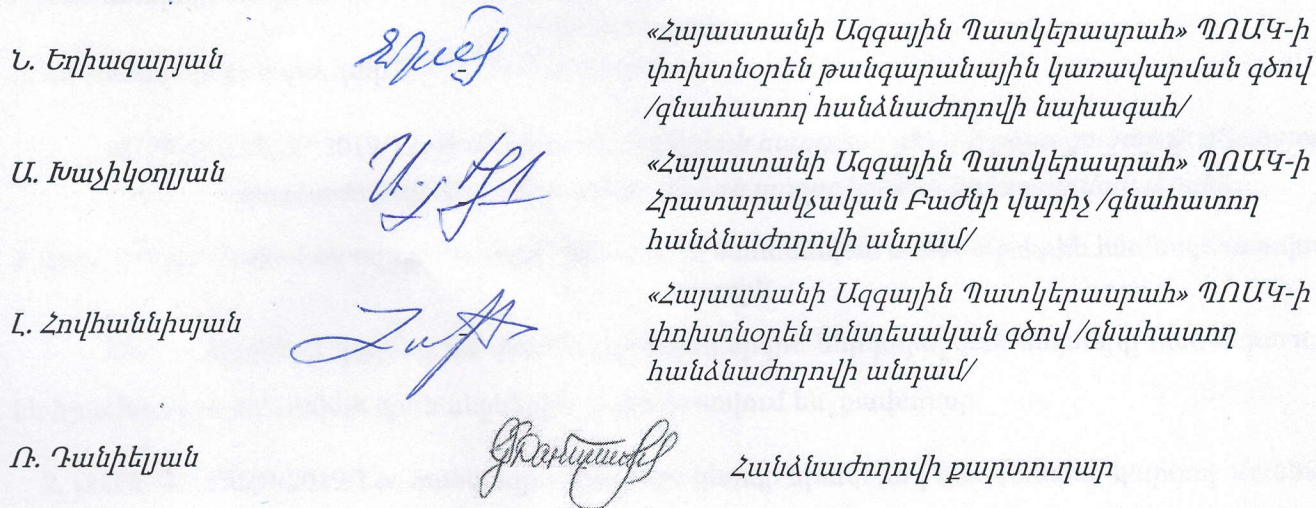 Ն. Եղիազարյան
«Հայաստանի Ազգային Պատկերասրահ» ՊՈԱԿ-ի
փոխտնօրեն թանգարանային կառավարման գծով
/գնահատող հանձնաժողովի նախագահ/
Ա. Խաչիկօղլյան
«Հայաստանի Ազգային Պատկերասրահ» ՊՈԱԿ-ի
Հրատարակչական Բաժնի վարիչ /գնահատող
հանձնաժողովի անդամ/
Լ. Հովհաննիսյան
«Հայաստանի Ազգային Պատկերասրահ» ՊՈԱԿ-ի
փոխտնօրեն տնտեսական գծով /գնահատող
հանձնաժողովի անդամ/
Ռ. Դանիելյան
Հանձնաժողովի քարտուղար